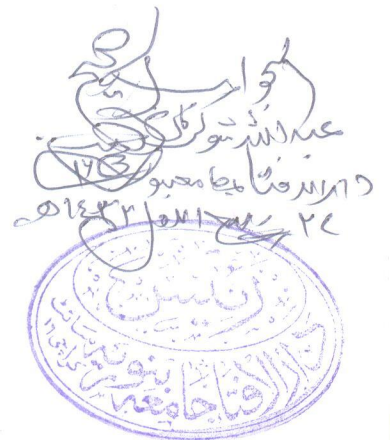 الجواب صحیح
عبداللہ شوکت
دارالافتاء جامعہ بنوریہ
۲۴ ربیع الاول ۱۴۳۳ھ
رئیس
دارالافتا جامعہ بنوریہ سائٹ کراچی ۱۶